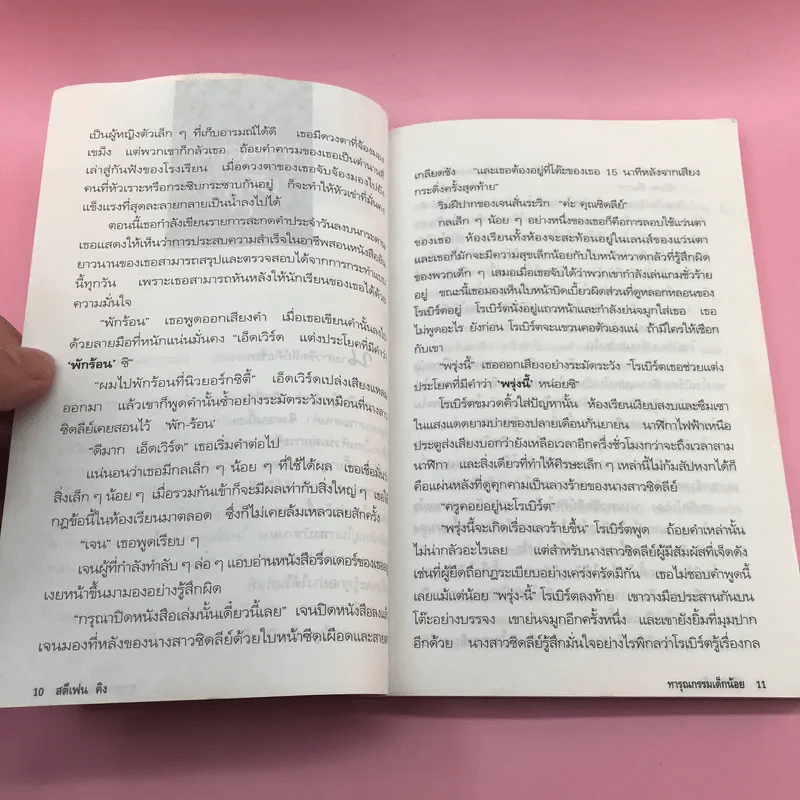 เป็นผู้หญิงตัวเล็ก ๆ ที่เก็บอารมณ์ได้ดี เธอมีดวงตาที่จ้องมอง
เขม็ง แต่พวกเขาก็กลัวเธอ ถ้อยคำคารมของเธอเป็นตำนานที่
เล่าสู่กันฟังของโรงเรียน เมื่อดวงตาของเธอจับจ้องมองไปยัง
คนที่หัวเราะหรือกระซิบกระซาบกันอยู่ ก็จะทำให้หัวเข่าที่มั่นคง
แข็งแรงที่สุดละลายกลายเป็นน้ำลงไปได้
ตอนนี้เธอกำลังเขียนรายการสะกดคำประจำวันลงบนกระดาน
เธอแสดงให้เห็นว่าการประสบความสำเร็จในอาชีพสอนหนังสืออัน
ยาวนานของเธอสามารถสรุปและตรวจสอบได้จากการกระทำแบบ
นี้ทุกวัน เพราะเธอสามารถหันหลังให้นักเรียนของเธอได้ด้วย
ความมั่นใจ
“พักร้อน” เธอพูดออกเสียงคำ เมื่อเธอเขียนคำนั้นลงไป
ด้วยลายมือที่หนักแน่นมั่นคง “เอ็ดเวิร์ด แต่งประโยคที่มีคำว่า
‘พักร้อน’ ซิ”
“ผมไปพักร้อนที่นิวยอร์กซิตี้” เอ็ดเวิร์ดเปล่งเสียงแหลม
ออกมา แล้วเขาก็พูดคำนั้นซ้ำอย่างระมัดระวังเหมือนที่นางสาว
ซิดลีย์เคยสอนไว้ ‘พัก-ร้อน’
“ดีมาก เอ็ดเวิร์ด” เธอเริ่มคำต่อไป
แน่นอนว่าเธอมีกลเล็ก ๆ น้อย ๆ ที่ใช้ได้ผล เธอเชื่อมั่นว่า
สิ่งเล็ก ๆ น้อย ๆ เมื่อรวมกันเข้าก็จะมีผลเท่ากับสิ่งใหญ่ ๆ เธอใช้
กฎข้อนี้ในห้องเรียนมาตลอด ซึ่งก็ไม่เคยล้มเหลวเลยสักครั้ง
“เจน” เธอพูดเรียบ ๆ
เจนผู้ที่กำลังทำลับ ๆ ล่อ ๆ แอบอ่านหนังสือรีดเดอร์ของเธออยู่
เงยหน้าขึ้นมามองอย่างรู้สึกผิด
“กรุณาปิดหนังสือเล่มนั้นเดี๋ยวนี้เลย” เจนปิดหนังสือลงแล้ว
เจนมองที่หลังของนางสาวซิดลีย์ด้วยใบหน้าซีดเผือดและสายตา
10 สตีเฟน คิง
เกลียดชัง “และเธอต้องอยู่ที่โต๊ะของเธอ 15 นาทีหลังจากเสียง
กระดิ่งครั้งสุดท้าย”
ริมฝีปากของเจนสั่นระริก “ค่ะ คุณซิดลีย์”
กลเล็ก ๆ น้อย ๆ อย่างหนึ่งของเธอก็คือการลอบใช้แว่นตา
ของเธอ ห้องเรียนทั้งห้องจะสะท้อนอยู่ในเลนส์ของแว่นตา
และเธอก็มักจะมีความสุขเล็กน้อยกับใบหน้าหวาดกลัวที่รู้สึกผิด
ของพวกเด็ก ๆ เสมอเมื่อเธอจับได้ว่าพวกเขากำลังเล่นเกมชั่วร้าย
อยู่ ขณะนี้เธอมองเห็นใบหน้าบิดเบี้ยวผิดส่วนที่ดูหลอกหลอนของ
โรเบิร์ตอยู่ โรเบิร์ตนั่งอยู่แถวหน้าและกำลังย่นจมูกใส่เธอ เธอ
ไม่พูดอะไร ยังก่อน โรเบิร์ตจะแขวนคอตัวเองแน่ ถ้ามีใครให้เชือก
กับเขา
“พรุ่งนี้” เธอออกเสียงอย่างระมัดระวัง “โรเบิร์ตเธอช่วยแต่ง
ประโยคที่มีคำว่า ‘พรุ่งนี้’ หน่อยซิ”
โรเบิร์ตขมวดคิ้วใส่ปัญหานั้น ห้องเรียนเงียบสงบและซึมเซา
ในแสงแดดยามบ่ายของปลายเดือนกันยายน นาฬิกาไฟฟ้าเหนือ
ประตูส่งเสียงบอกว่ายังเหลือเวลาอีกครึ่งชั่วโมงกว่าจะถึงเวลาสาม
นาฬิกา และสิ่งเดียวที่ทำให้ศีรษะเล็ก ๆ เหล่านี้ไม่ก้มสัปหงกได้ก็
คือแผ่นหลังที่ดูคุกคามเป็นลางร้ายของนางสาวซิดลีย์
“ครูคอยอยู่นะโรเบิร์ต”
“พรุ่งนี้จะเกิดเรื่องเลวร้ายขึ้น” โรเบิร์ตพูด ถ้อยคำเหล่านั้น
ไม่น่ากลัวอะไรเลย แต่สำหรับนางสาวซิดลีย์ผู้มีสัมผัสที่เจ็ดดัง
เช่นที่ผู้ยึดถือกฎระเบียบอย่างเคร่งครัดมีกัน เธอไม่ชอบคำพูดนี้
เลยแม้แต่น้อย “พรุ่-งนี้” โรเบิร์ตลงท้าย เขาวางมือประสานกันบน
โต๊ะอย่างบรรจง เขาย่นจมูกอีกครั้งหนึ่ง และเขายังยิ้มที่มุมปาก
อีกด้วย นางสาวซิดลีย์รู้สึกมั่นใจอย่างไรพิกลว่าโรเบิร์ตรู้เรื่องกล
ทารุณกรรมเด็กน้อย 11